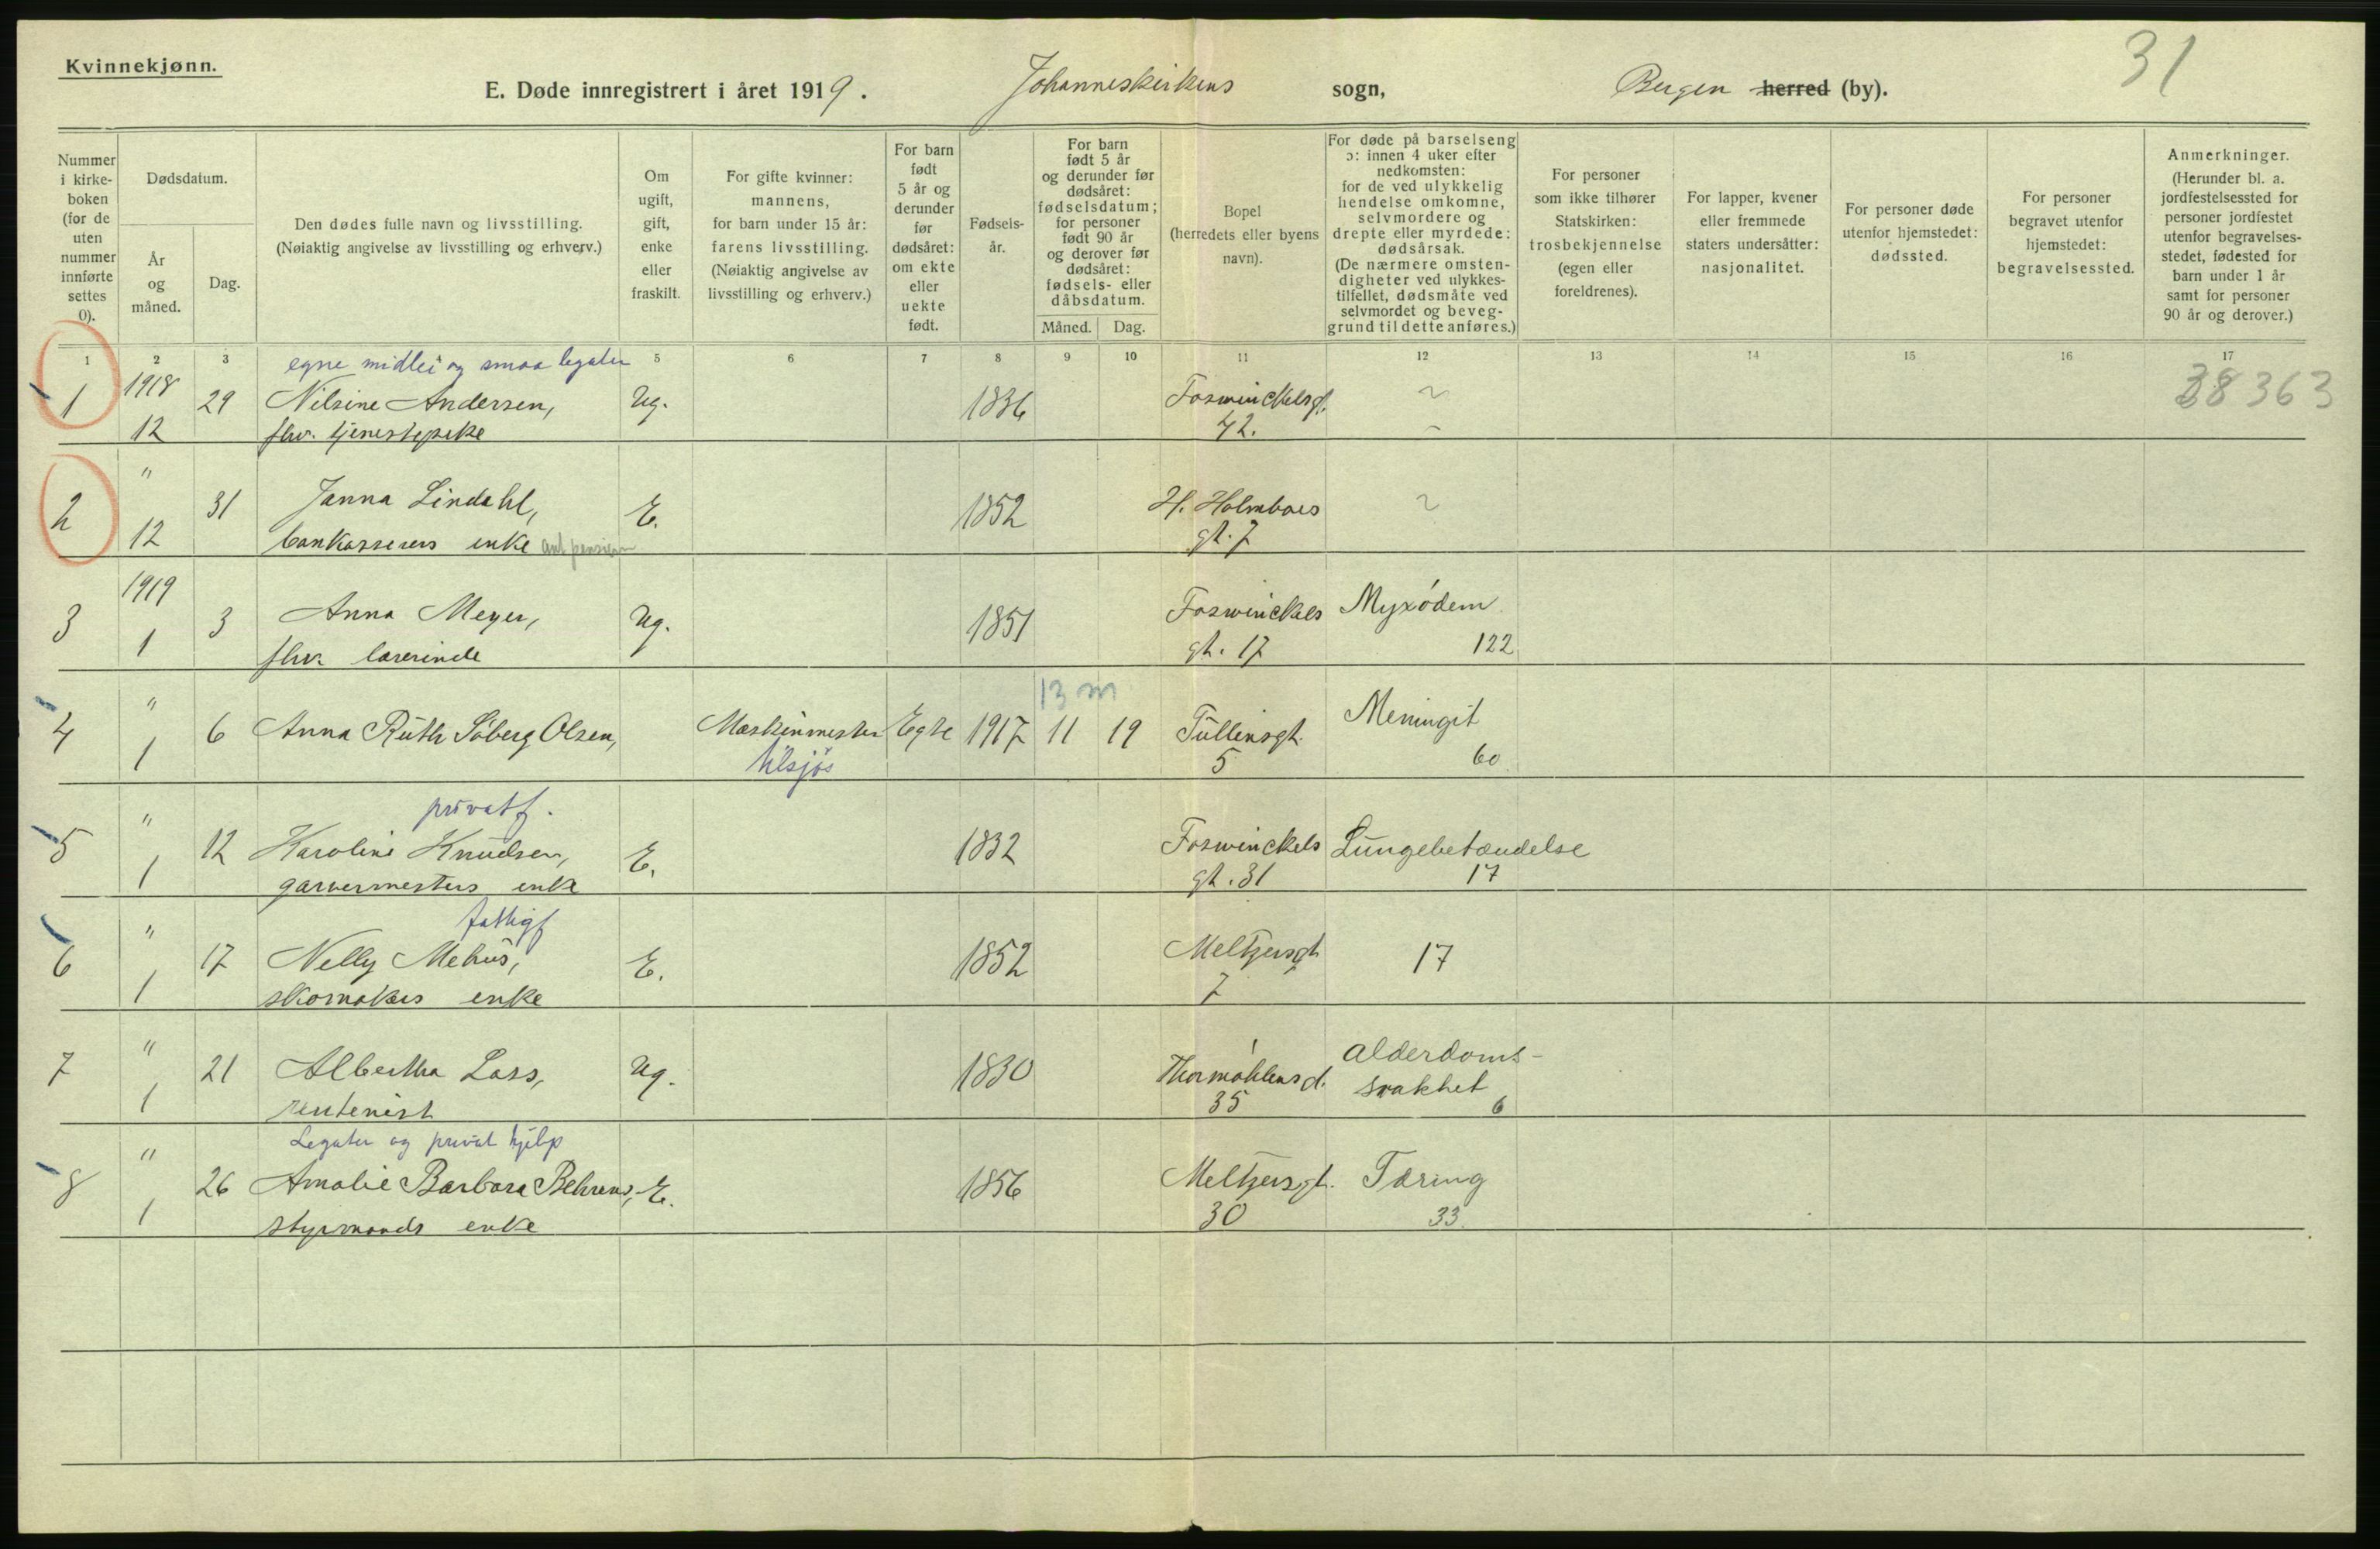 Kvinnekjønn.
31
E. Døde innregistrert i året 1919. Johanneskirkens sogn, Bergen herred (by).
Nummer i kirke-boken (for de uten nummer innførte settes 0).
Dødsdatum.
År og måned.
Dag.
Den dødes fulle navn og livsstilling.
(Nøiaktig angivelse av livsstilling og erhverv.)
Om ugift, gift, enke eller fraskilt.
For gifte kvinner: mannens, for barn under 15 år: farens livsstilling.
(Nøiaktig angivelse av livsstilling og erhverv.)
For barn født 5 år og derunder før dødsåret: om ekte eller uekte født.
Fødsels-år.
For barn født 5 år og derunder før dødsåret: fødselsdatum; for personer født 90 år og derover før dødsåret: fødsels- eller dåbsdatum.
Måned. Dag.
Bopel (herredets eller byens navn).
For døde på barselseng ɔ: innen 4 uker efter nedkomsten: for de ved ulykkelig hendelse omkomne, selvmordere og drepte eller myrdede: dødsårsak.
(De nærmere omsten-digheter ved ulykkes-tilfellet, dødsmåte ved selvmordet og beveg-grund til dette anføres.)
For personer som ikke tilhører Statskirken: trosbekjennelse (egen eller foreldrenes).
For lapper, kvener eller fremmede staters undersåtter: nasjonalitet.
For personer døde utenfor hjemstedet: dødssted.
For personer begravet utenfor hjemstedet: begravelsessted.
Anmerkninger.
(Herunder bl. a. jordfestelsessted for personer jordfestet utenfor begravelses-stedet, fødested for barn under 1 år samt for personer 90 år og derover.)
1 2 3 5 6 7 8 9 10 11 12 13 14 15 16 17
egne midler og smaa legater
1 1918 29 Nilsine Andersen, Ug. 1836 Foswinckelsgt. ~ 38363
12 fhv. tjenestepike 42. ~
2 " 31 Janna Lindahl, E. 1852 H. Holmboes ~
12 bankasserers enke ant pension gt. 7
3 1919 3 Anna Meyer, Ug. 1851 Foswinckels Myxødem
1 fhv. lærerinde gt. 17 122
13 m
4 " 6 Anna Ruth Søberg Olsen, Maskinmester Egte 1917 11 19 Tullinsgt. Meningit
1 tilsjøs 5 60
privatf.
5 " 12 Karoline Knudsen, E. 1832 Foswinckels Lungebetændelse
1 garvermesters enke gt. 31 17
fattigf
6 " 17 Nelly Mehus, E. 1852 Meltzersgt. 17
1 skomakers enke 7
7 " 21 Albertha Lass, Ug. 1830 Thormøhlensgt. Alderdoms-
1 rentenist 35 svakhet 6
Legater og privat hjelp
8 " 26 Amalie Barbara Behrens, E. 1856 Meltzersgt. Tæring
1 styrmands enke 30 33.